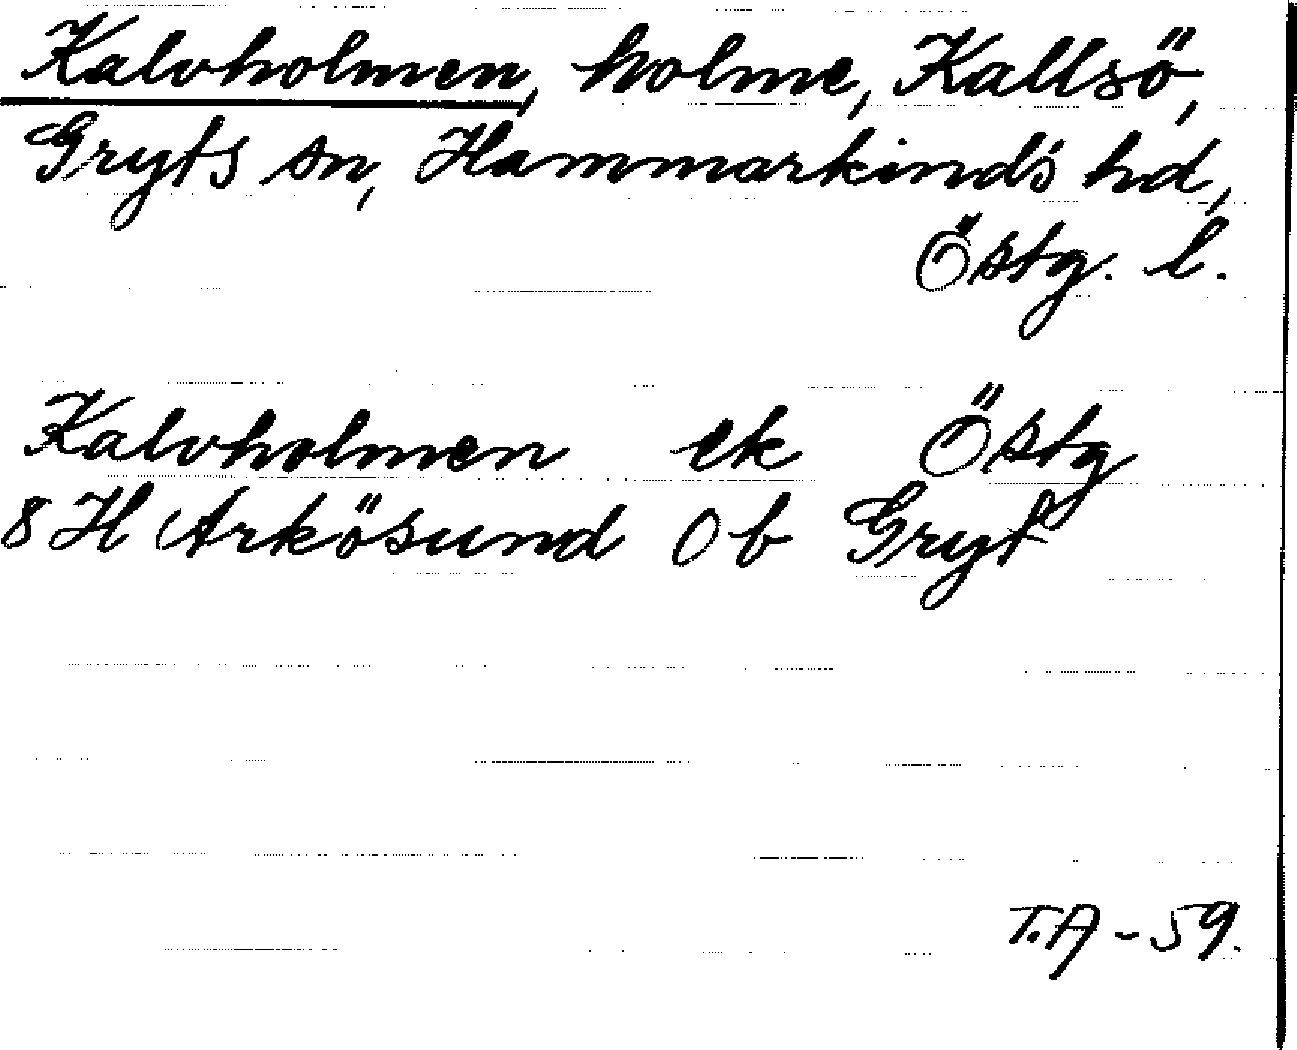 Kalvholmen, holme, Kallsö,
Gryts sn, Hammarkinds hd,
Östg. l.
Kalvholmen ek Östg
8 H Arkösund Ob Gryt
T.A - 59.